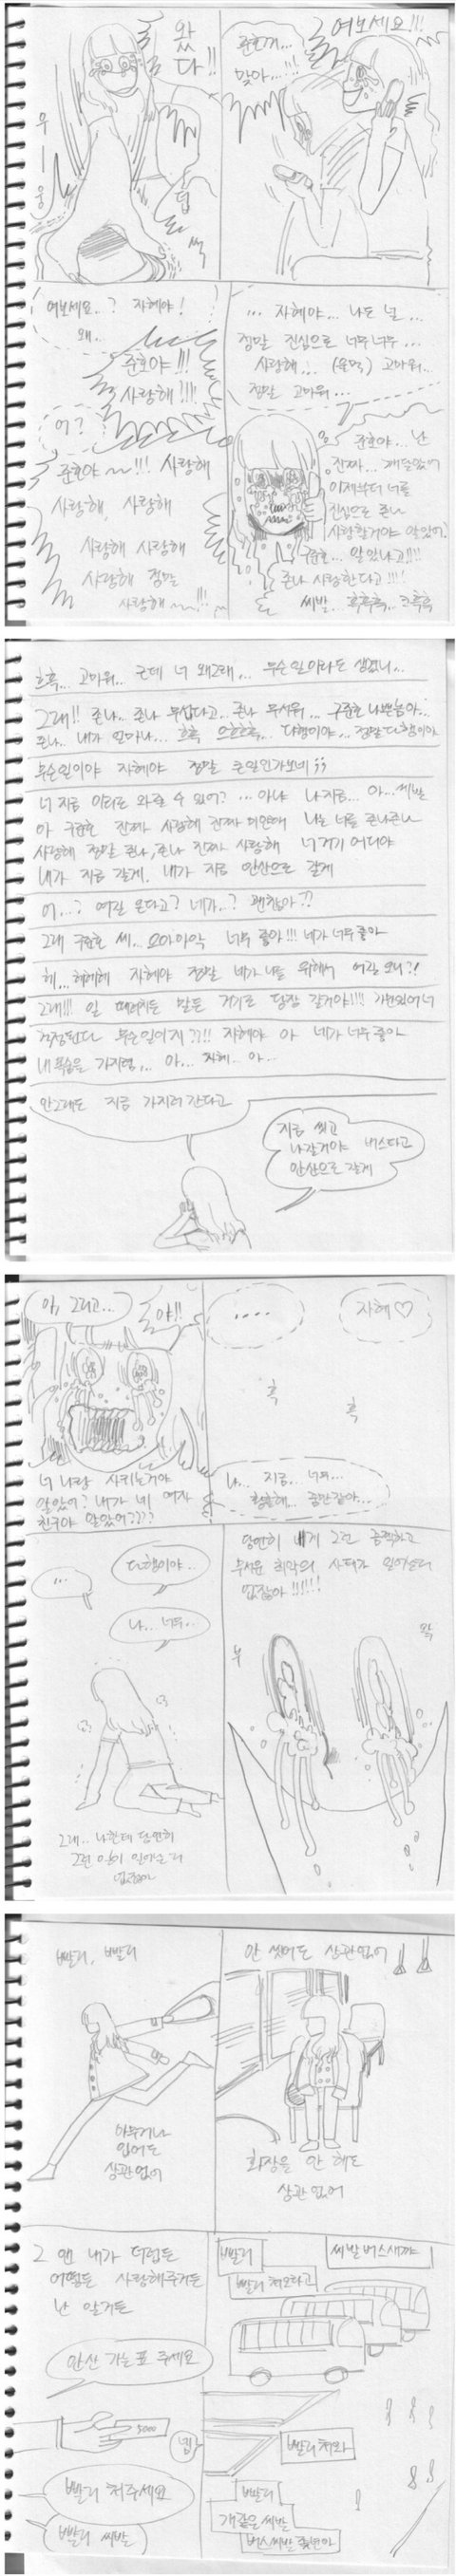 왔
다!!
우
ㅣ
웅
덥
썩
여보세요!!!
준호가...
맞아...!!
여보세요..? 자혜야!
왜..
준호야!!!
사랑해!!!!
어?
준호야~!!! 사랑해
사랑해, 사랑해
사랑해 사랑해
사랑해 정말
사랑해~!!!
... 자혜야... 나도 널...
정말 진심으로 너무너무...
사랑해... (울먹) 고마워...
정말 고마워...
준호야... 난
진짜... 깨달았어
이제부터 너를
진심으로 존나
사랑할거야 알았어?
구준호... 알았냐고!!!!
존나 사랑한다고!!!!
씨발... 흑흑흑.. 크흑흑
흐흑... 고마워... 근데 너 왜그래... 무슨일이라도 생겼니...
그래!! 존나.. 존나 무섭다고... 존나 무서워... 구준호 나쁜놈아...
존나.. 내가 얼마나... 흐흑 으흐흐흑.. 다행이야... 정말다행이야
무슨일이야 자혜야 정말 큰일인가보네;;
너 지금 이리로 와줄 수 있어? ...아냐 나지금... 아...씨발
아 구준호 진짜 사랑해 진짜 미안해 나는 너를 존나존나
사랑해 정말 존나, 존나 진짜 사랑해 너 거기 어디야
내가 지금 갈게. 내가 지금 안산으로 갈게
어...? 여길 온다고? 네가..? 괜찮아??
그래 구준호 씨... 으아아악 너무 좋아!!! 네가 너무 좋아
헤... 헤헤헤 자혜야 정말 네가 나를 위해서 여길 오니?!
그래!!! 일 때려치든 말든 거기로 당장 갈거야!!!! 기다리고있어 너
걱정된다 무슨일이지??!! 자혜야 아 네가 너무 좋아
내 목숨을 가지렴... 아... 자혜.. 아...
안그래도 지금 가지러 간다고
지금 씻고
나갈거야 버스타고
안산으로 갈게
아, 그리고...
야!!
너 나랑 사귀는거야
알았어? 내가 네 여자
친구야 알았어????
....
자혜♡
흑
흑
나... 지금... 너무...
황홀해... 꿈만같아...
...
다행이야..
나... 너무..
그래.. 나한테 당연히
그런 일이 일어날 리
없잖아
당연히 내게 그런 끔찍하고
무서운 최악의 사태가 일어날리
없잖아!!!!!!
부
왁
빨리, 빨리
아무거나
입어도
상관없어
안 씻어도 상관없어
화장을 안 해도
상관없어
그 앤 내가 더럽든
어떻든 사랑해주거든
난 알거든
안산 가는 표 주세요
5000
빨리 쳐주세요
빨리 씨발
넵
빨리
씨발버스새끼
빨리 쳐오라고
빨리쳐와
빨리
개같은 씨발